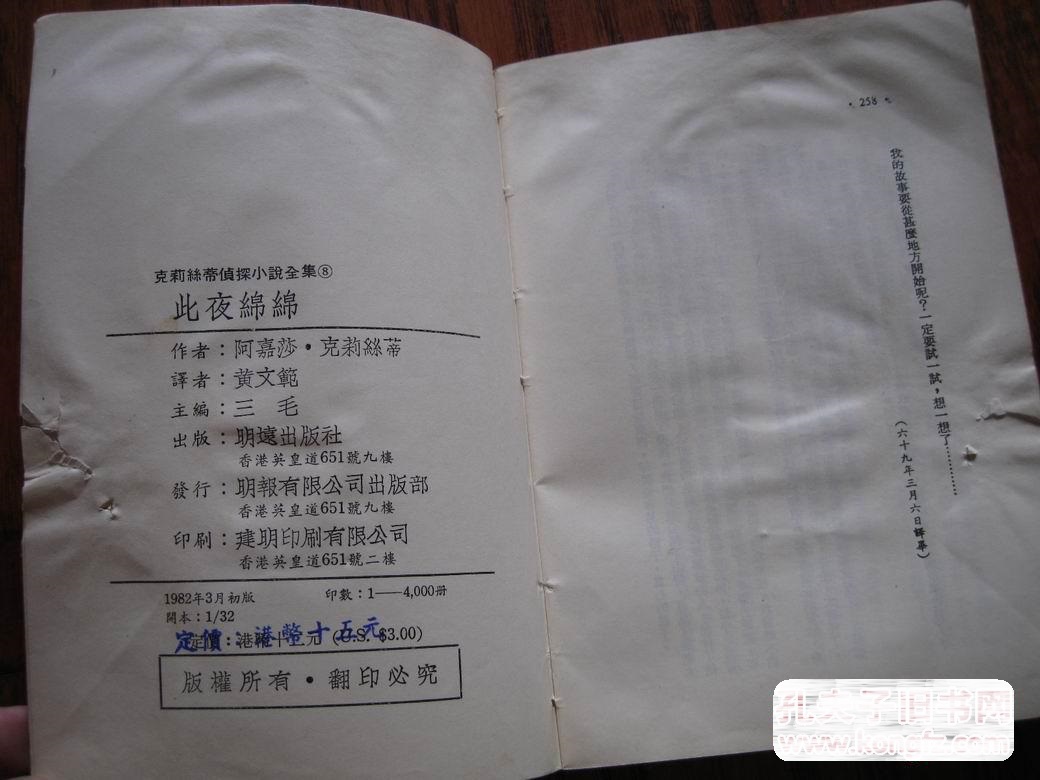 克莉絲蒂偵探小說全集⑧
此夜綿綿
作者：阿嘉莎·克莉絲蒂
譯者：黃文範
主編：三 毛
出版：明遠出版社
香港英皇道651號九樓
發行：明報有限公司出版部
香港英皇道651號九樓
印刷：建明印刷有限公司
香港英皇道651號二樓
1982年3月初版
印數：1——4,000册
開本：1/32
定價：港幣十五元
定價：港幣十二元 (U.S. $3.00)
版權所有·翻印必究
·258·
我的故事要從甚麼地方開始呢？一定要試一試，想一想了…………
（六十九年三月六日譯畢）
孔夫子旧书网
www.kongfz.com